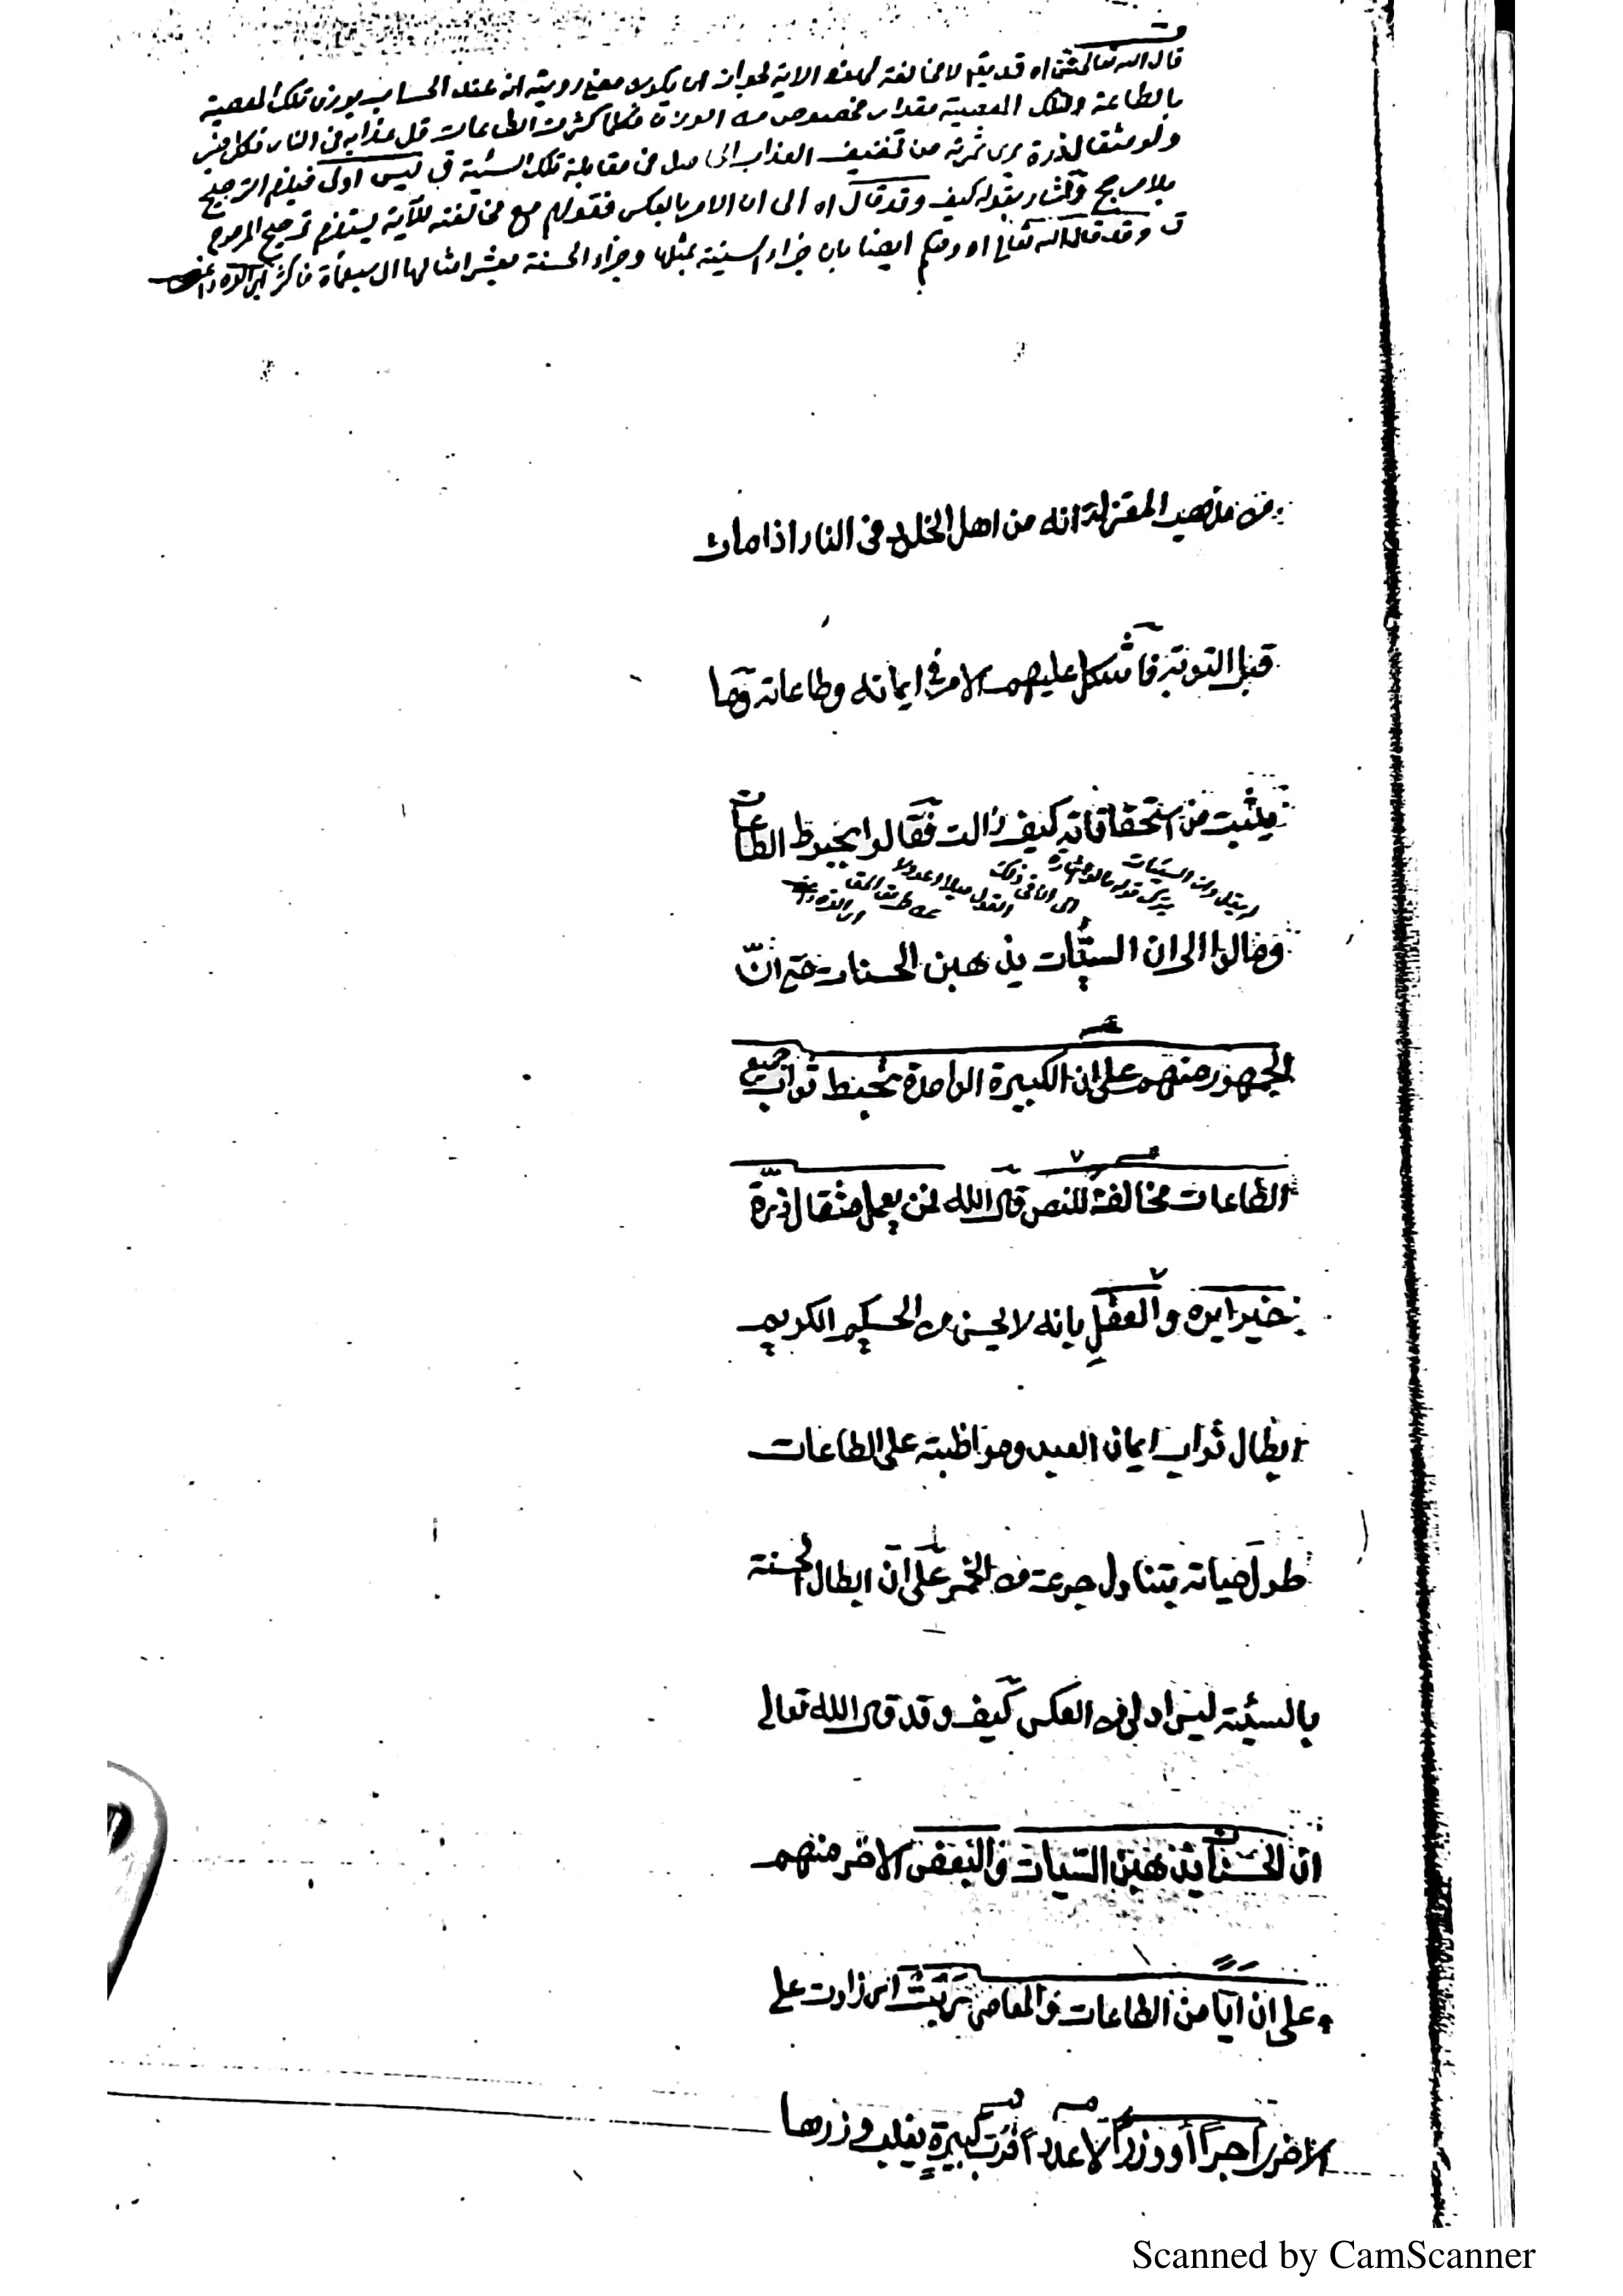 قال الله تعالى فمن اه قد يقم لا مخالفة لهذه الاية لجواز ان يكون معنى رويته انه عند الحساب يوزن تلك المعصية
بالطاعة وتلك المعصية مقدار مخصوص من الوزن فكلما كثرت الطاعات قل عذابه في النار فكل من
ولو مثقال ذرة يرى ثمرته من تخفيف العذاب الحاصل في مقابلة تلك السيئة ق ليس اولى فيلزم الترجيح
بلا مرجح واشار بقوله كيف وقد قال اه الى ان الامر بالعكس فقولهم مع مخالفته للآية يستلزم ترجيح المرجوح
ق وقد قال الله تعالى اه ايضا بان جزاء السيئة بمثلها وجزاء الحسنة بعشر امثالها الى سبعمأة فاكثر
من مذهب المعتزلة انه من اهل الخلود في النار اذا مات
قبل التوبة فاشكل عليهم الامر في ايمانه وطاعاته وما
يثبت من استحقاقاته كيف زالت فقالوا بحبوط الطاعات
ومالوا الى ان السيّات يذهبن الحسنات حتى انّ
الجمهور منهم على ان الكبيرة الواحدة تحبط ثواب جميع
الطاعات مخالفة للنص قال الله فمن يعمل مثقال ذرّة
خيرا يره والعقل بانه لا يحسن من الحكيم الكريم
ابطال ثواب ايمان العبد ومواظبته على الطاعات
طول حياته بتناول جرعة من الخمر على ان ابطال الحسنة
بالسيئة ليس اولى من العكس كيف وقد قال الله تعالى
ان الحسنات يذهبن السيات والبعض الاخر منهم
على ان ايا من الطاعات والمعاصي تربت اى زادت على
الاخرى اجراً أو وزراً لا عدداً فرب كبيرةٍ يغلب وزرها
Scanned by CamScanner